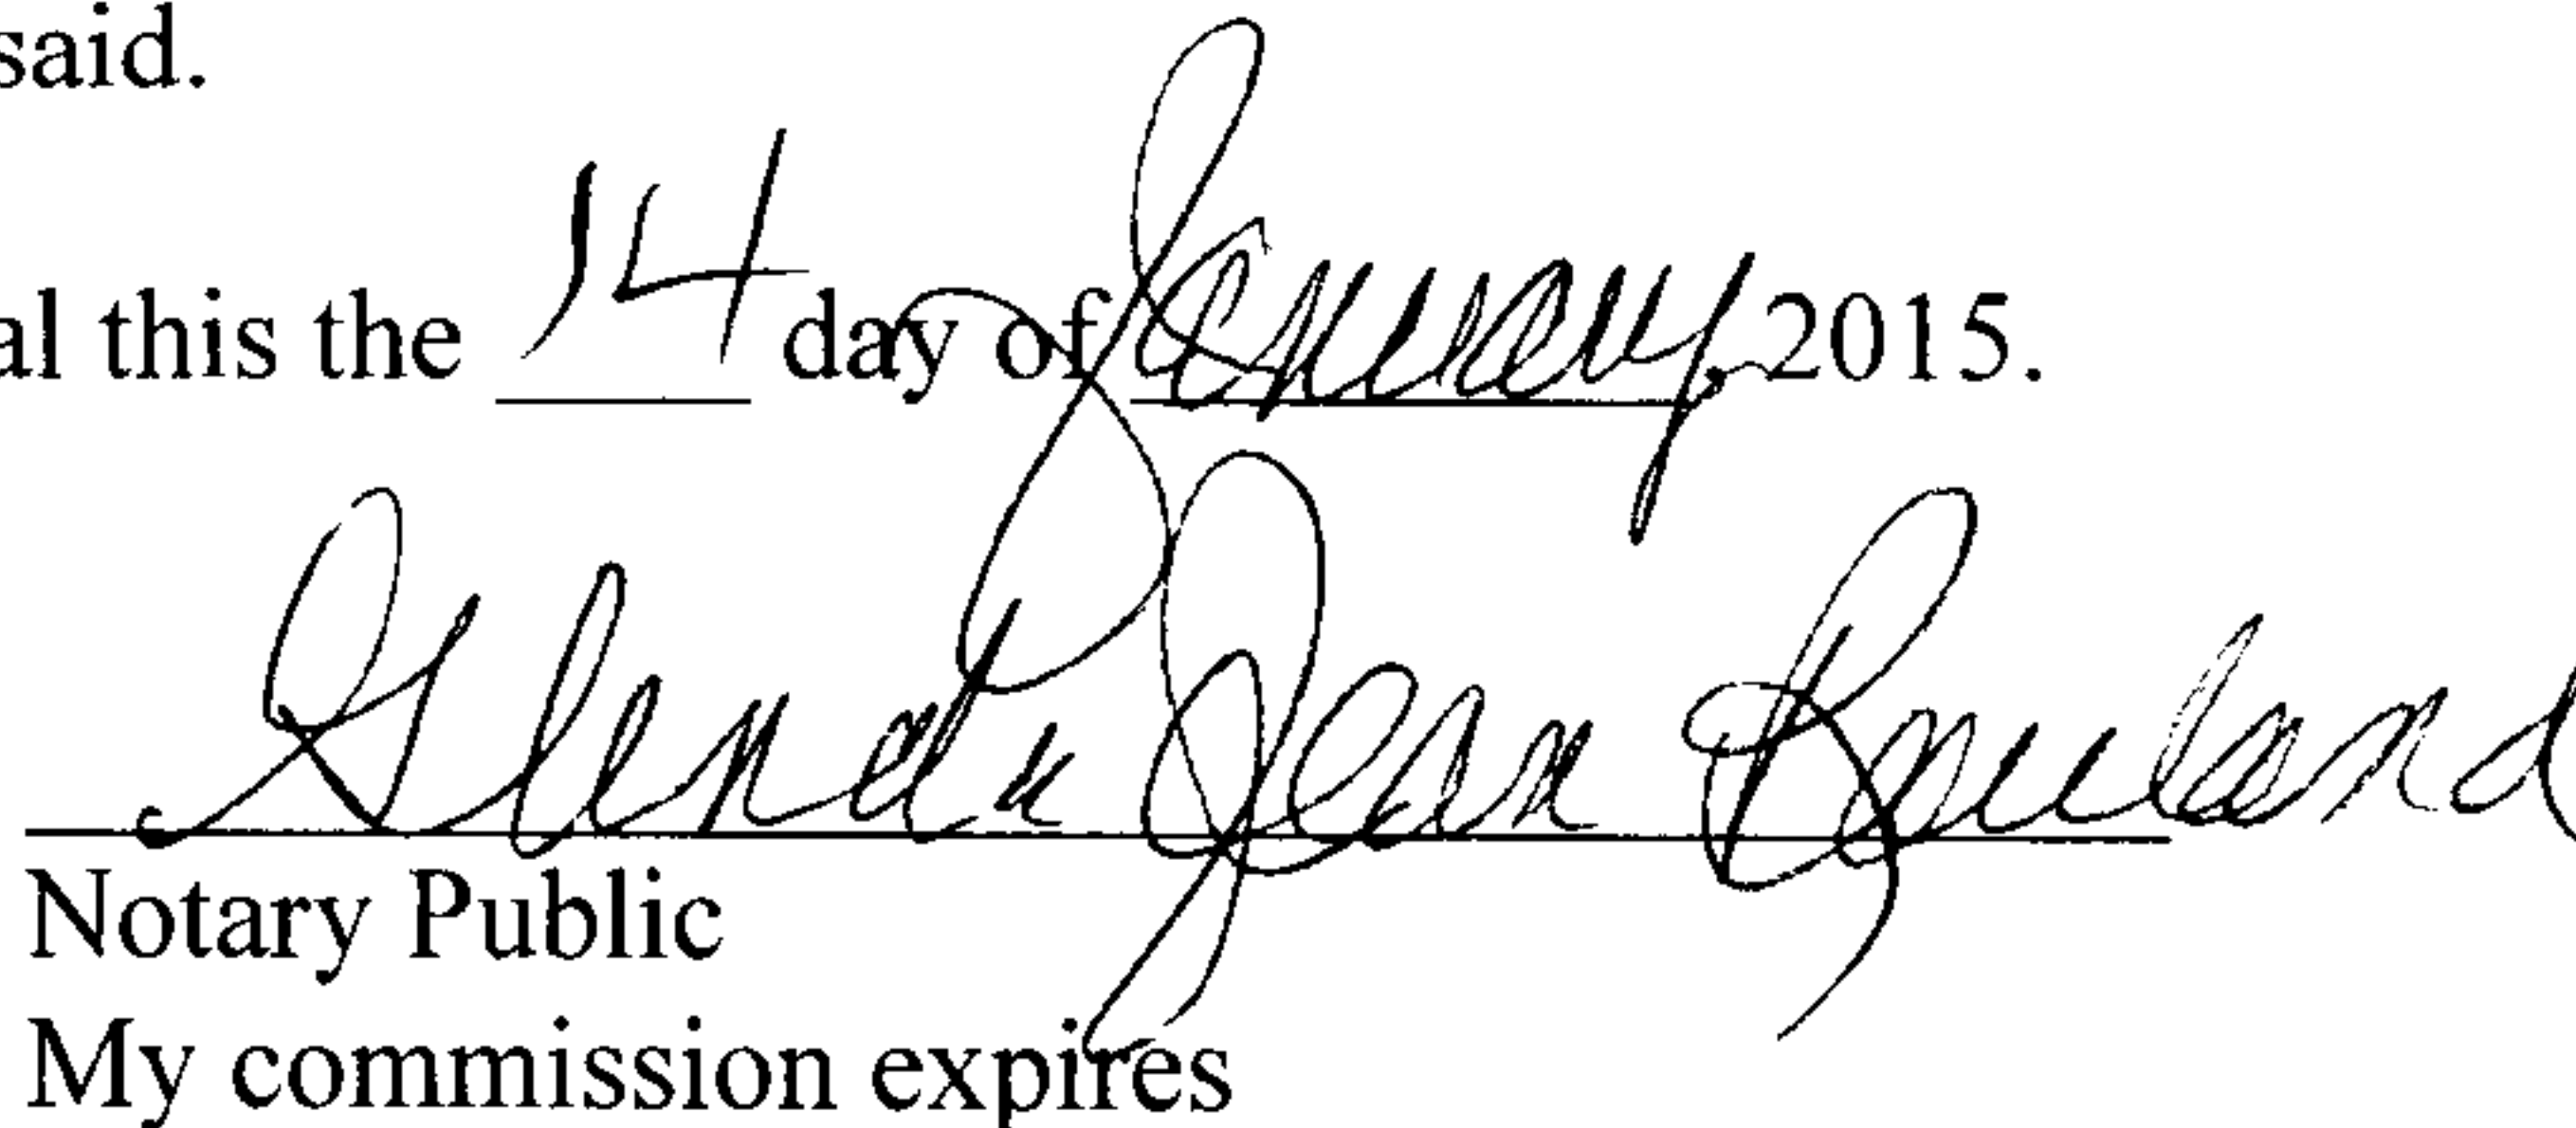 said.
al this the 14 day of January, 2015.
Glenda Jean Rowland
Notary Public
My commission expires